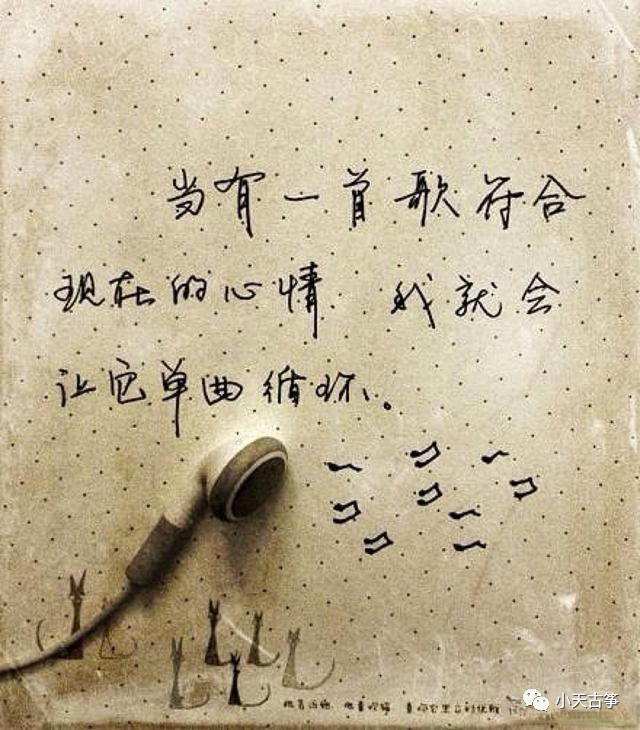 当有一首歌符合
现在的心情 我就会
让它单曲循环。
小天古筝